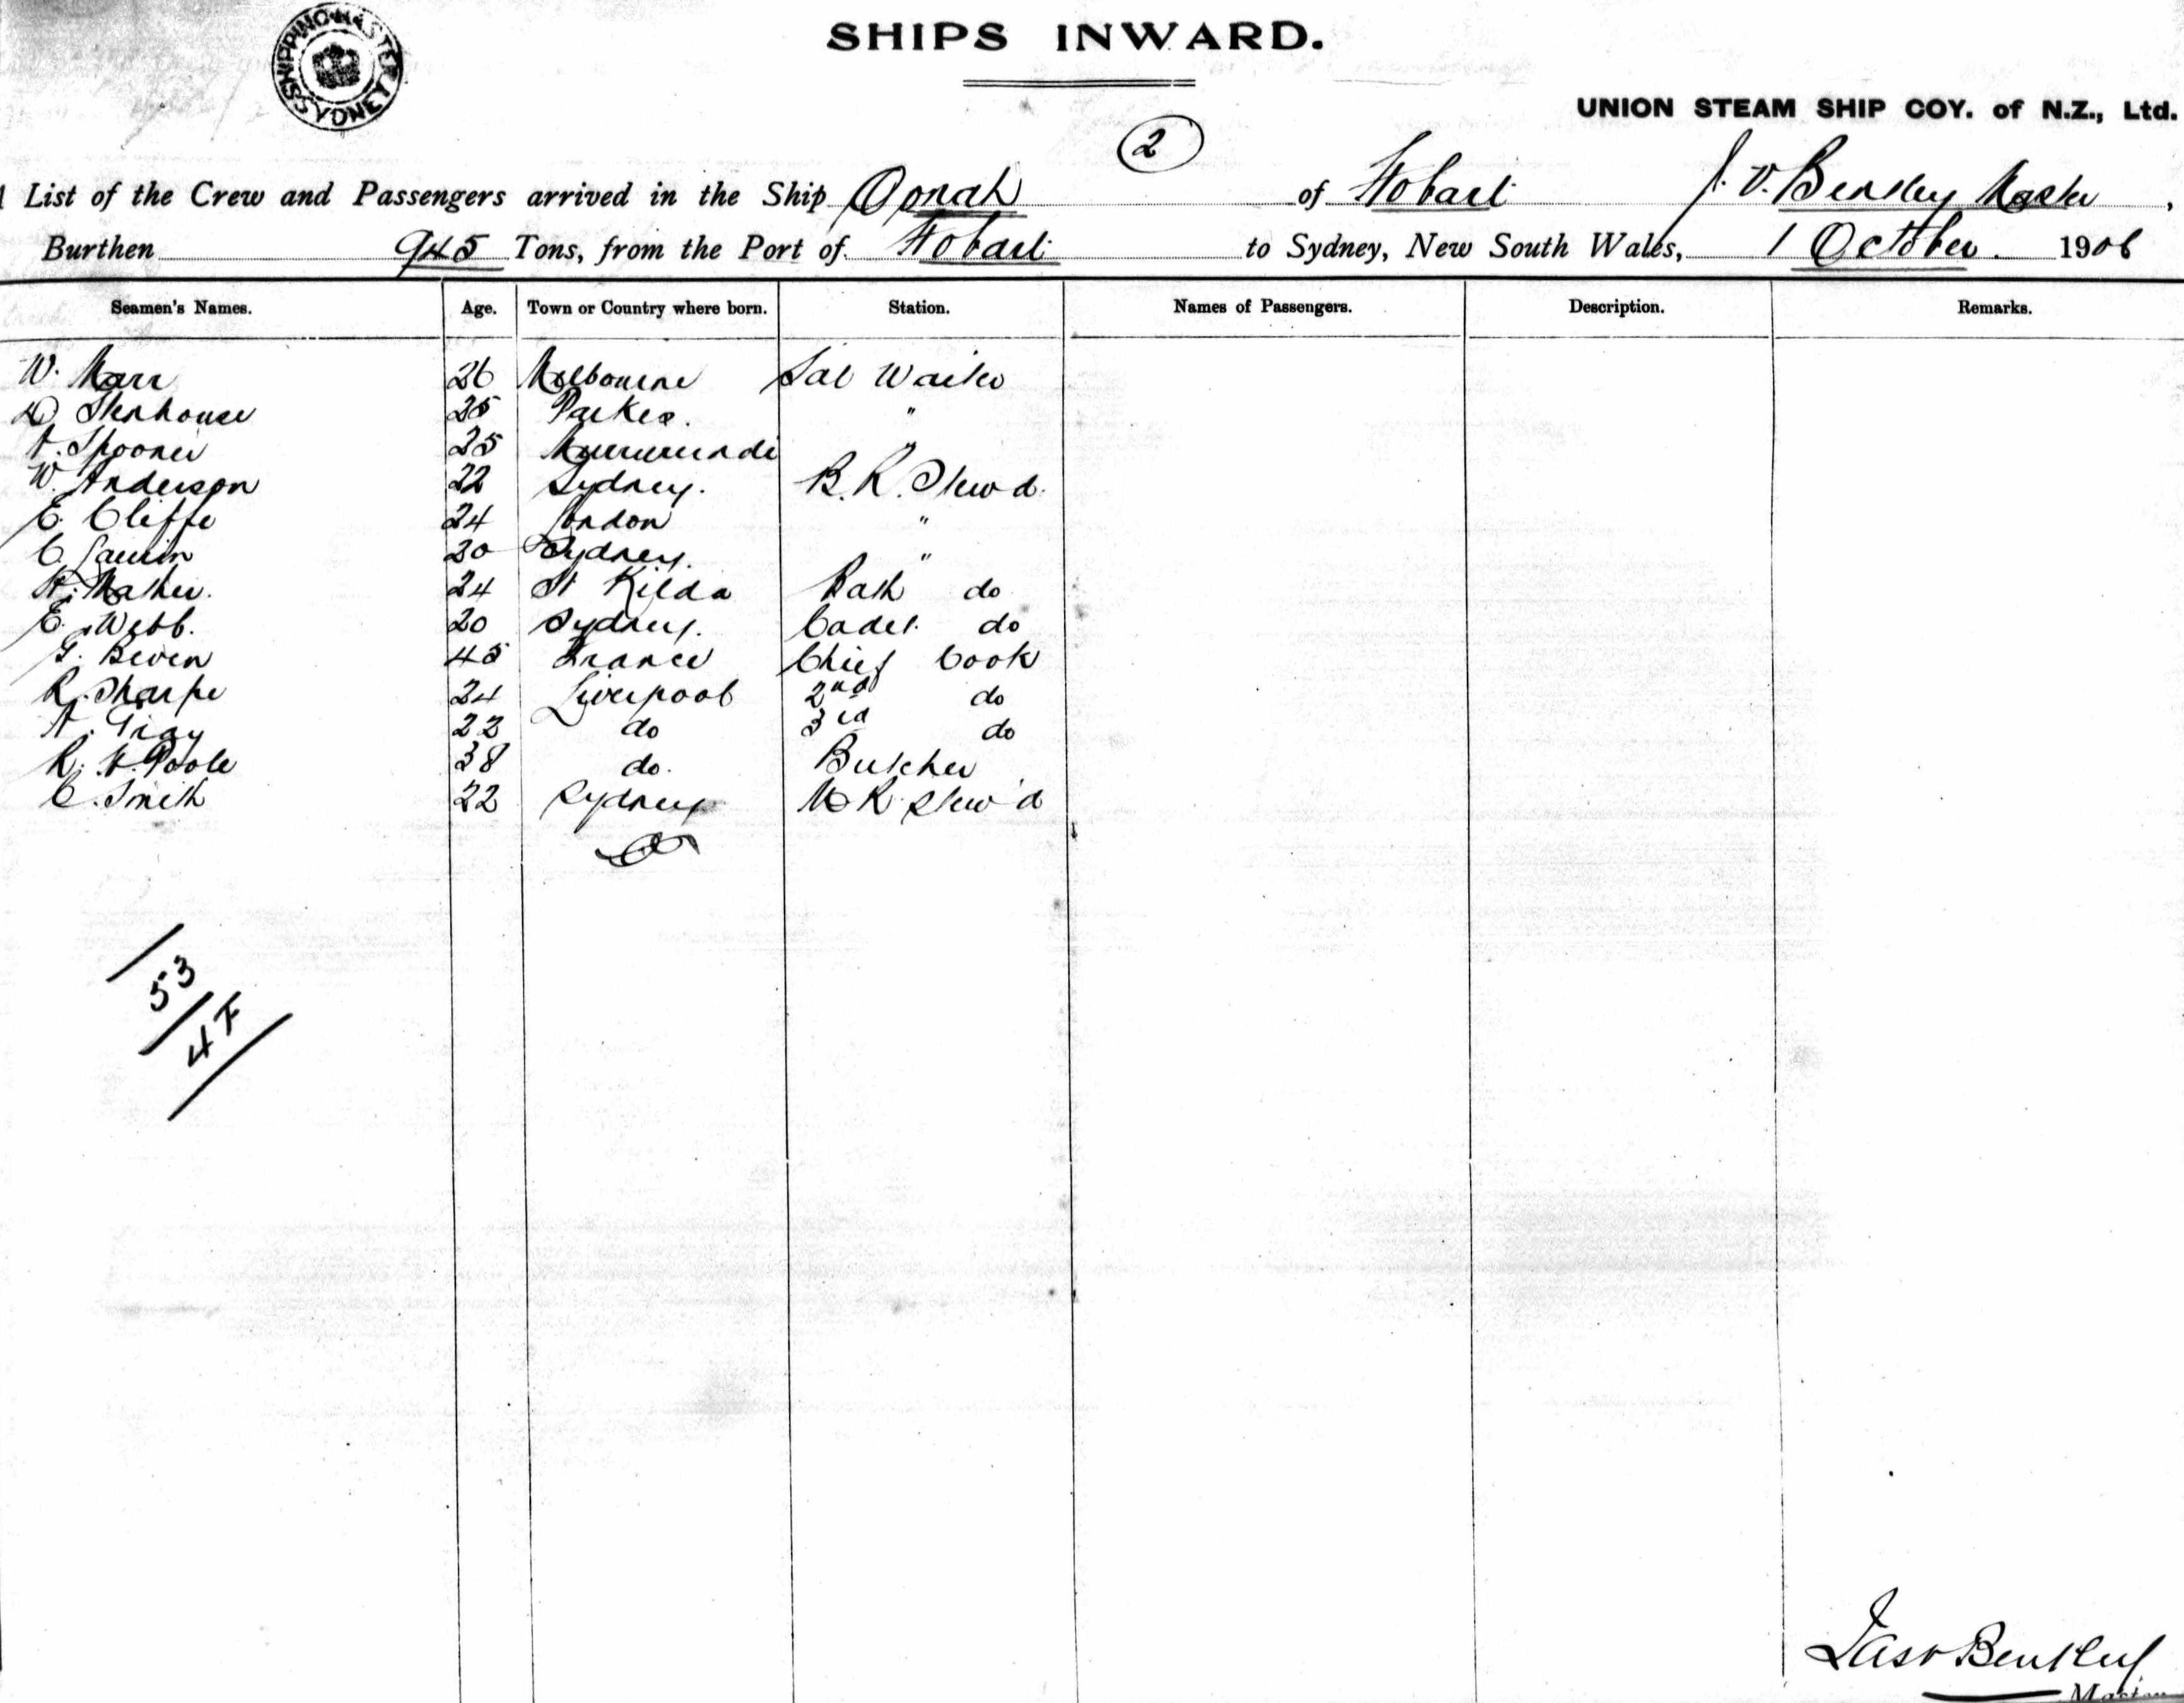 SHIPPING MASTER SYDNEY
SHIPS INWARD.
UNION STEAM SHIP COY. of N.Z., Ltd.
2
List of the Crew and Passengers arrived in the Ship Oonah of Hobart J. V. Bentley Master,
Burthen 945 Tons, from the Port of Hobart to Sydney, New South Wales, 1 October 1906
Seamen's Names. Age. Town or Country where born. Station. Names of Passengers. Description. Remarks.
W. Marr 26 Melbourne Sal Waiter
D Stenhouse 25 Parkes. "
A. Spooner 25 Murrurundi "
W. Anderson 22 Sydney. B. R. Stewd.
E. Cliffe 24 London "
C. 20 Sydney. "
H. Maher. 24 St Kilda Bath do
E. Webb. 20 Sydney. Cadet. do
G. Beven 45 France Chief Cook
R. Sharpe 24 Liverpool 2nd do
A. Gray 22 do 3rd do
R. H. Poole 38 do. Butcher
C. Smith 22 Sydney M R Stew'd
53
47
Jas V Bentley
Master